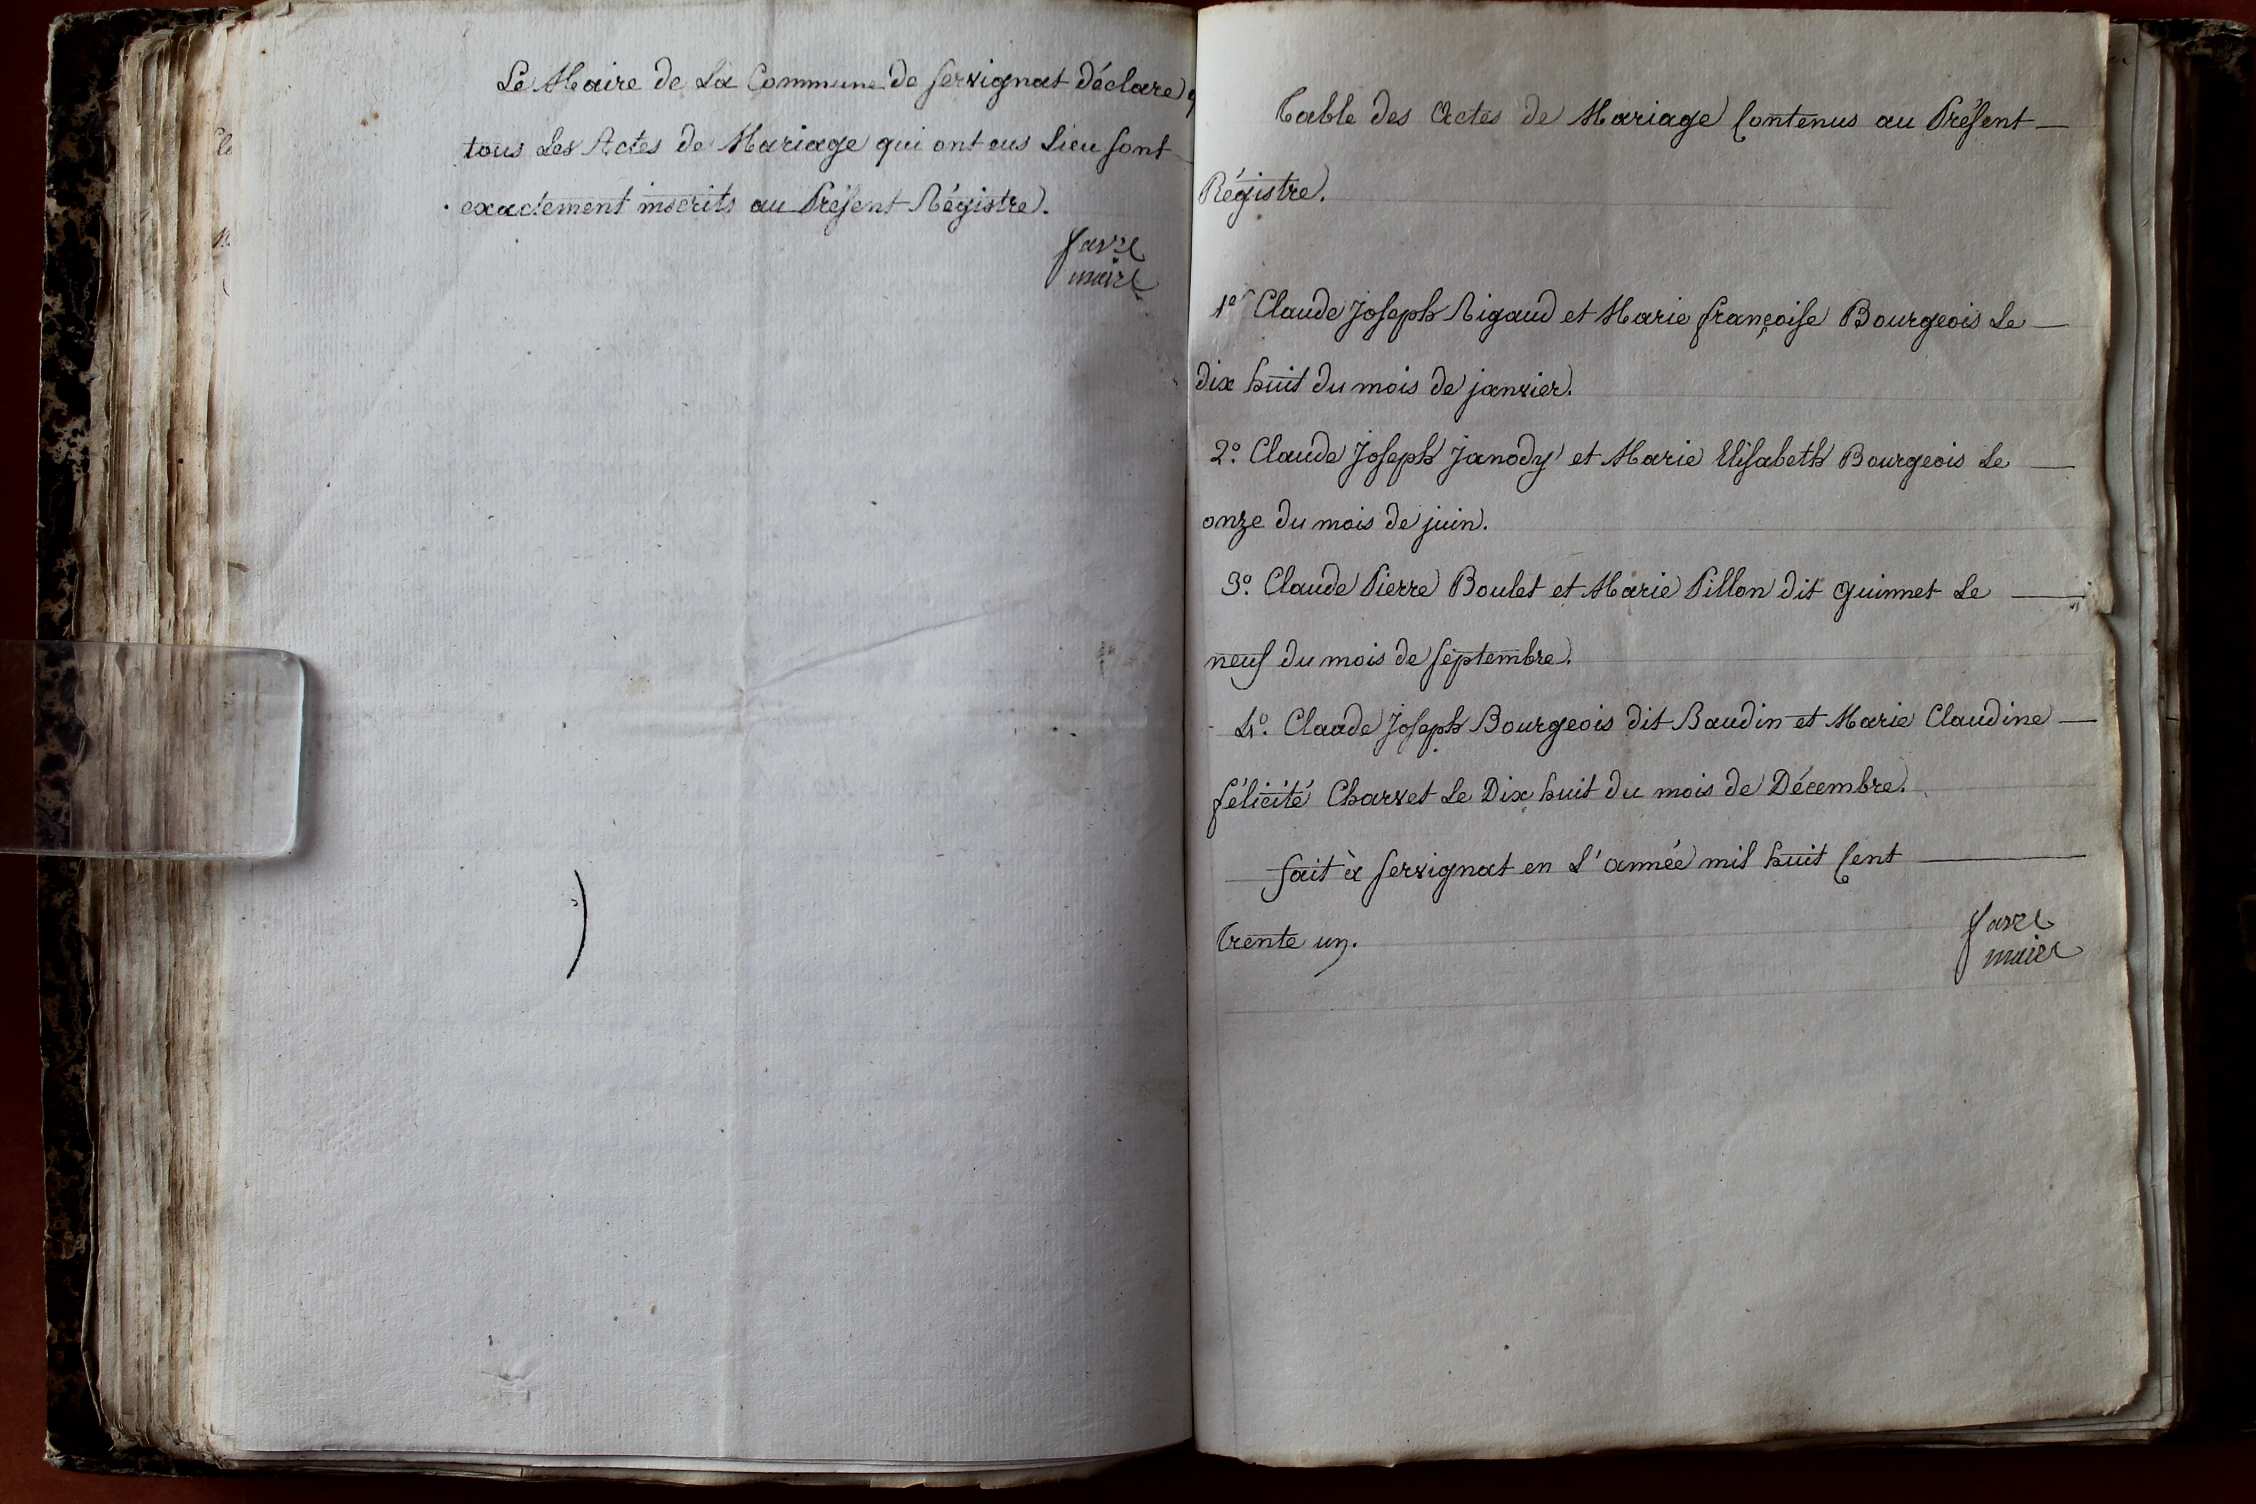 Le Maire de La Commune de Servignat Déclare
tous Les Actes de Mariage qui ont eus Lieu sont
exactement inscrits au Présent Régistre.
favre
maire
Table des Actes de Mariage Contenus au Présent
Régistre.
1º Claude Joseph Rigaud et Marie françoise Bourgeois Le
dix huit du mois de janvier.
2º. Claude Joseph Janody et Marie Elisabeth Bourgeois Le
onze du mois de juin.
3º. Claude Pierre Boulet et Marie Pillon dit guinnet Le
neuf du mois de septembre.
4º. Claude Joseph Bourgeois dit Baudin et Marie Claudine
félicité Charvet Le Dix huit du mois de Décembre.
fait à Servignat en L'année mil huit Cent
Trente un.
favre
maire